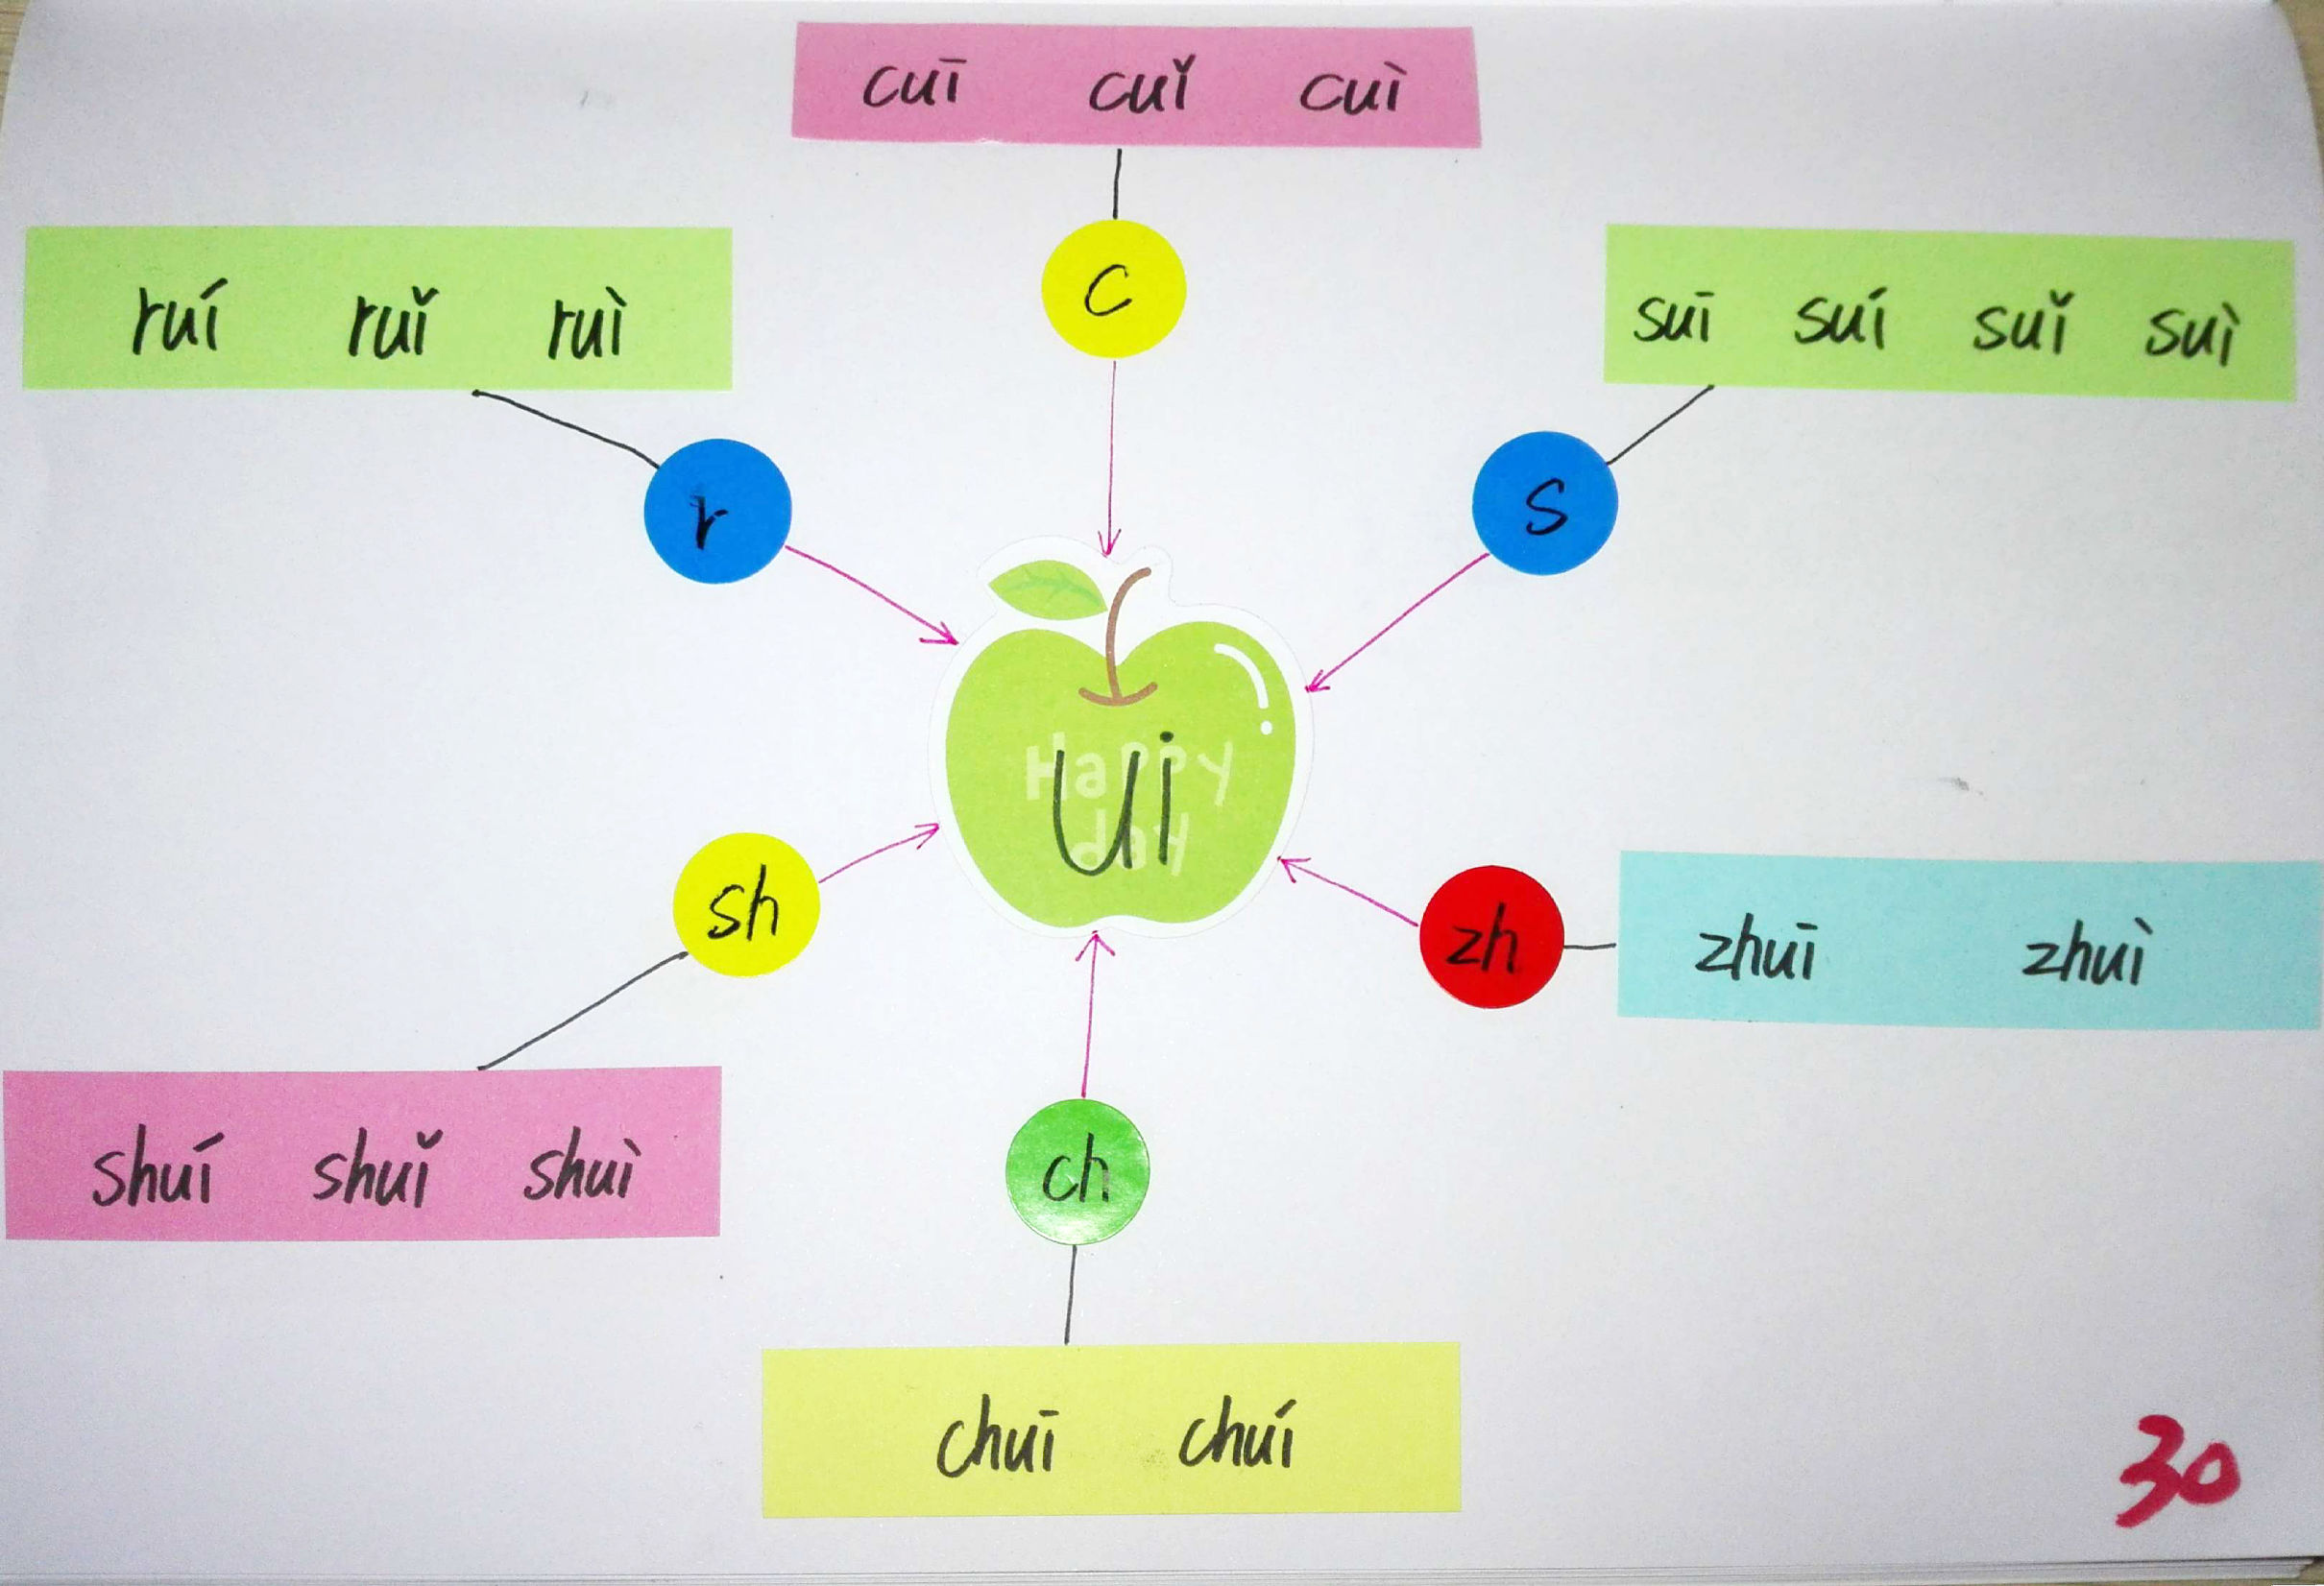 cuī cuǐ cuì
c
ruí ruǐ ruì
r
suī suí suǐ suì
s
Happy
day
ui
sh
shuí shuǐ shuì
zh
zhuī zhuì
ch
chuī chuí
30